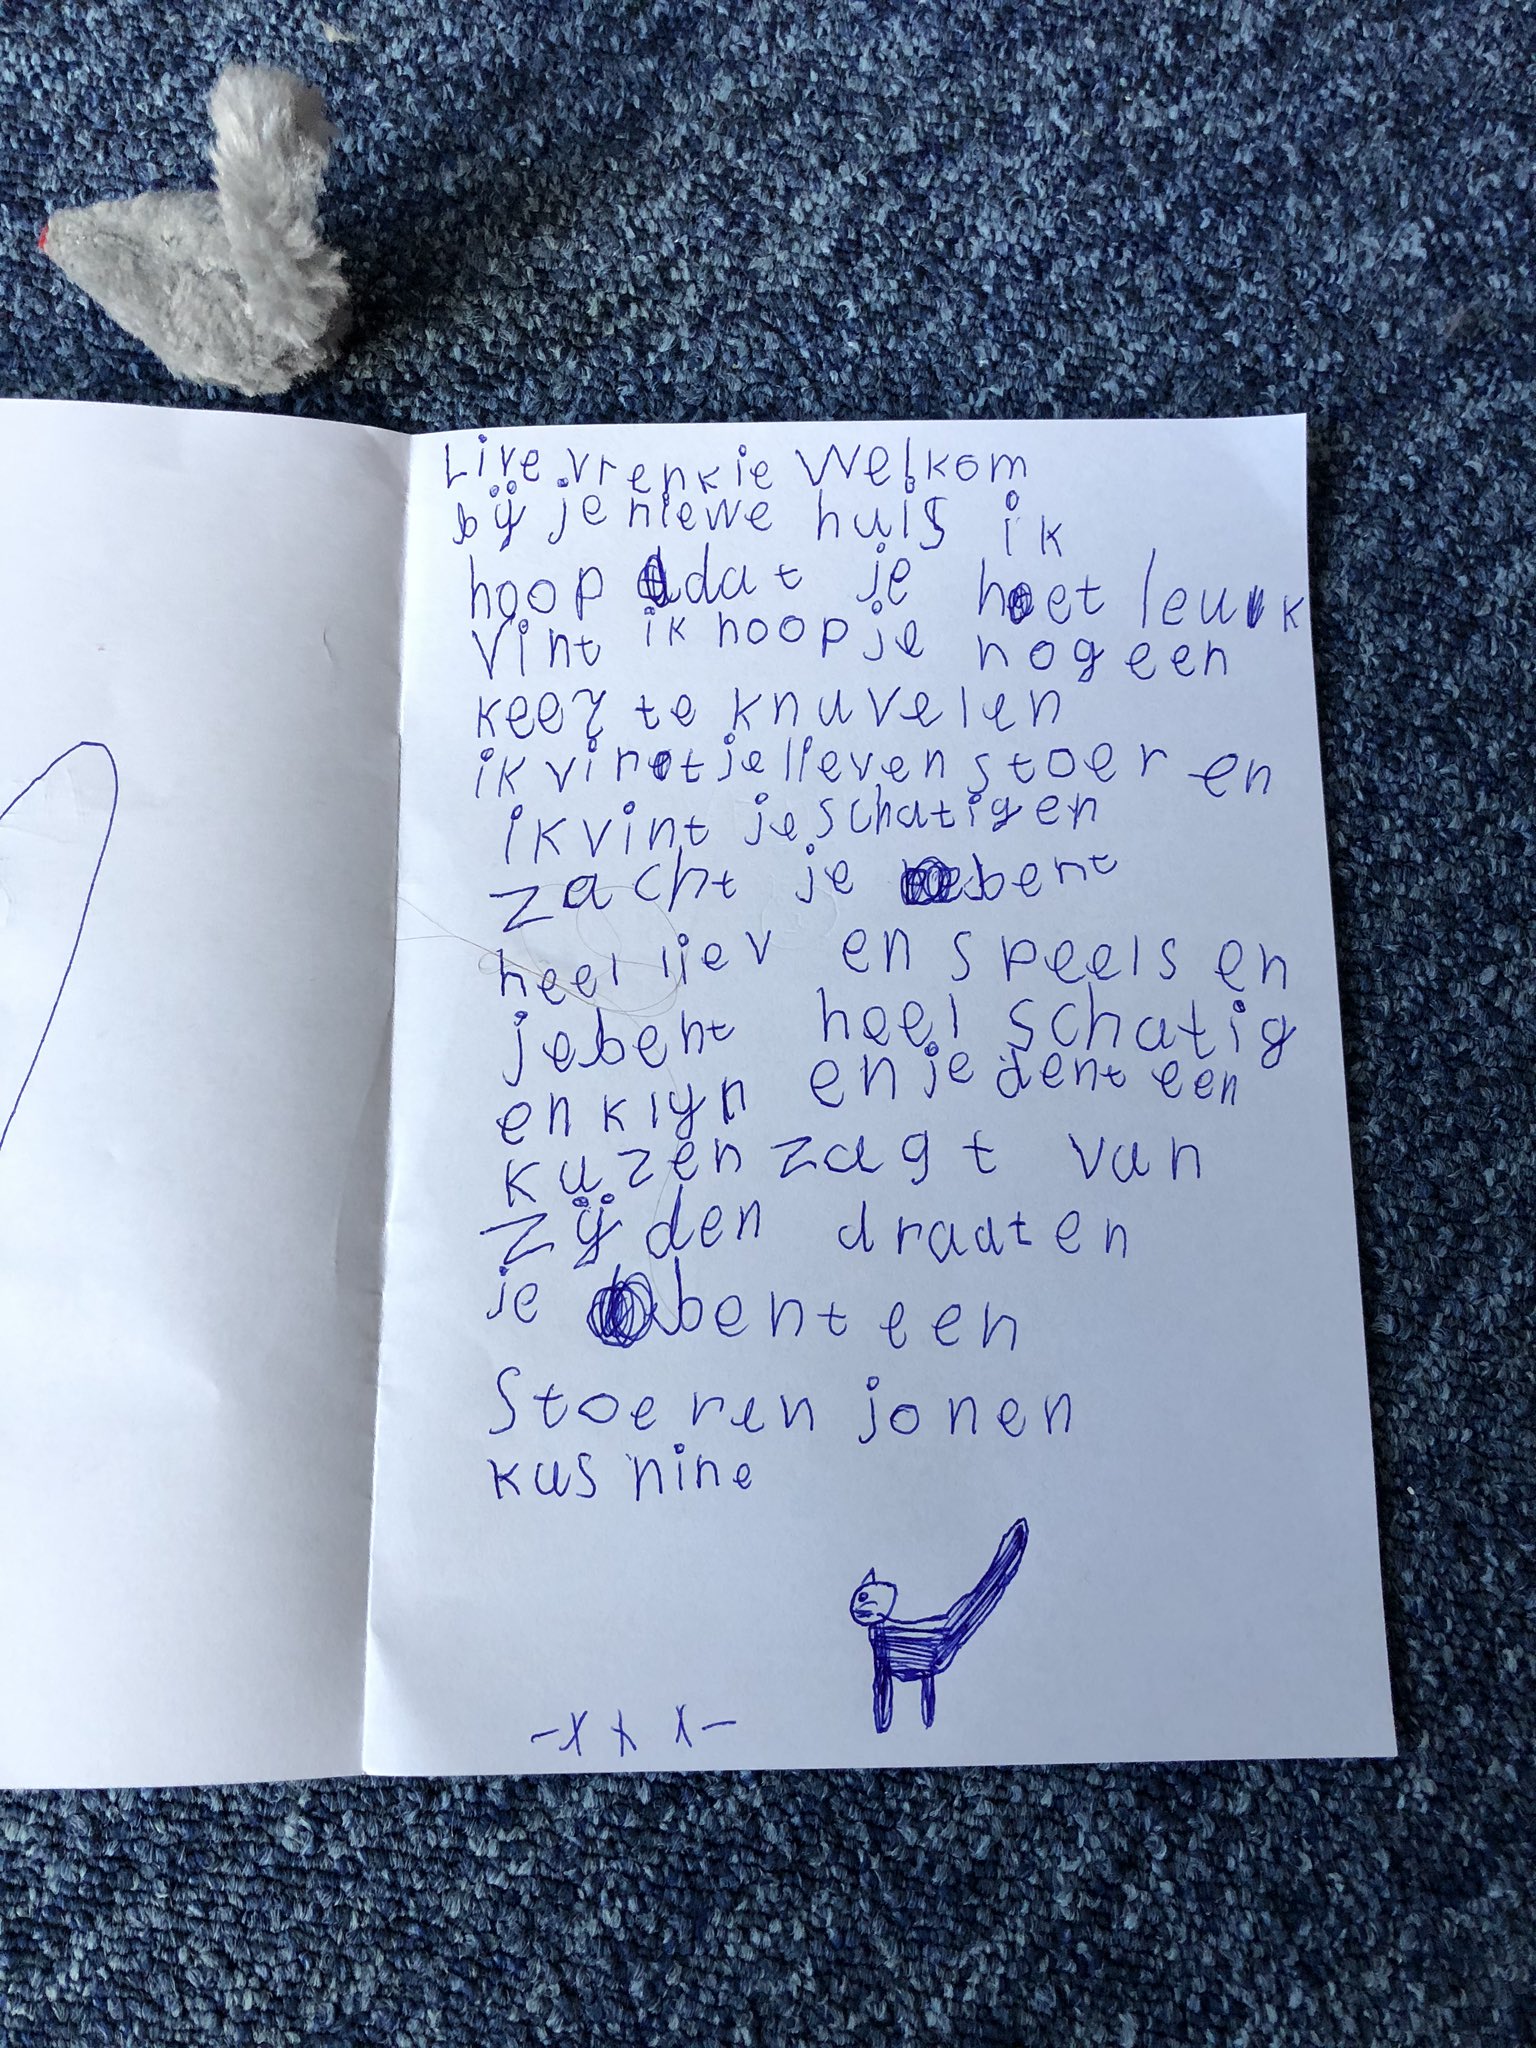 Live vrenkie Welkom
bij je niewe huis ik
hoop dat je het leuk
vint ik hoop je nog een
keer te knuvelen
ik vint je lieven stoer en
ik vint je schatigen
zacht je bent
heel liev en speels en
je bent heel schatig
en klyn en je bent een
kuzen zagt van
zijden draaten
je bent een
Stoeren jonen
kus nine
-x x x-